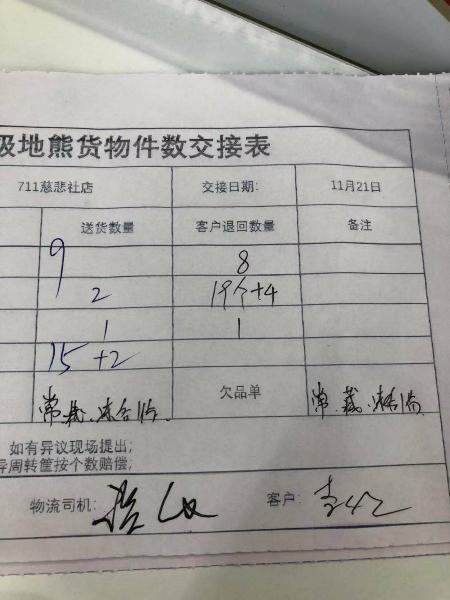 极地熊货物件数交接表
711慈悲社店 交接日期: 11月21日
送货数量 客户退回数量 备注
9 8
2 19个+4
1 1
15+2
欠品单
如有异议现场提出;
异周转筐按个数赔偿,
物流司机: 客户: